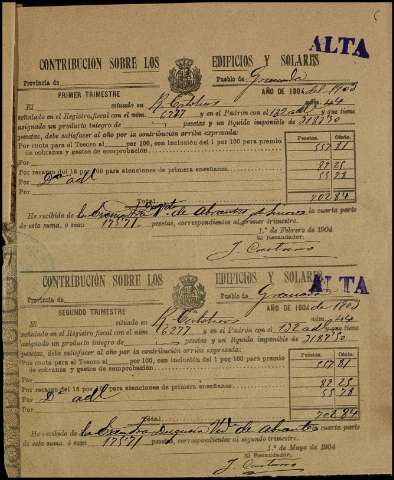 ALTA
CONTRIBUCIÓN SOBRE LOS EDIFICIOS Y SOLARES
Provincia de Pueblo de Granada
PRIMER TRIMESTRE AÑO DE 1904 del 1903
El situado en R. Católicos 44
señalado en el Registro fiscal con el núm. 6277 y en el Patrón con el 132 adl y que tiene
asignado un producto íntegro de pesetas y un líquido imponible de 3187'50
pesetas, debe satisfacer al año por la contribución arriba expresada:
Pesetas. Cénts.
Por cuota para el Tesoro al por 100, con inclusión del 1 por 100 para premio
de cobranza y gastos de comprobación. 557 81
Por recargo del 16 por 100 para atenciones de primera enseñanza. 89 25
Dª adl 55 78
Total 702 84
He recibido de la de Abrantes la cuarta parte
de esta suma, ó sean 175'71 pesetas, correspondientes al primer trimestre.
1.º de Febrero de 1904
El Recaudador,
ALTA
CONTRIBUCIÓN SOBRE LOS EDIFICIOS Y SOLARES
Provincia de Pueblo de Granada
SEGUNDO TRIMESTRE AÑO DE 1904 de 1903
El situado en R. Católicos nº 44
señalado en el Registro fiscal con el núm. 6277 y en el Patrón con el 132 adl y que tiene
asignado un producto íntegro de pesetas y un líquido imponible de 3187'50
pesetas, debe satisfacer al año por la contribución arriba expresada:
Pesetas. Cénts.
Por cuota para el Tesoro al por 100, con inclusión del 1 por 100 para premio
de cobranza y gastos de comprobación. 557 81
Por recargo del 16 por 100 para atenciones de primera enseñanza. 89 25
Dª adl 55 78
Total 702 84
He recibido de la Duquesa Vda de Abrantes la cuarta parte
de esta suma, ó sean 175'71 pesetas, correspondientes al segundo trimestre.
1.º de Mayo de 1904
El Recaudador,